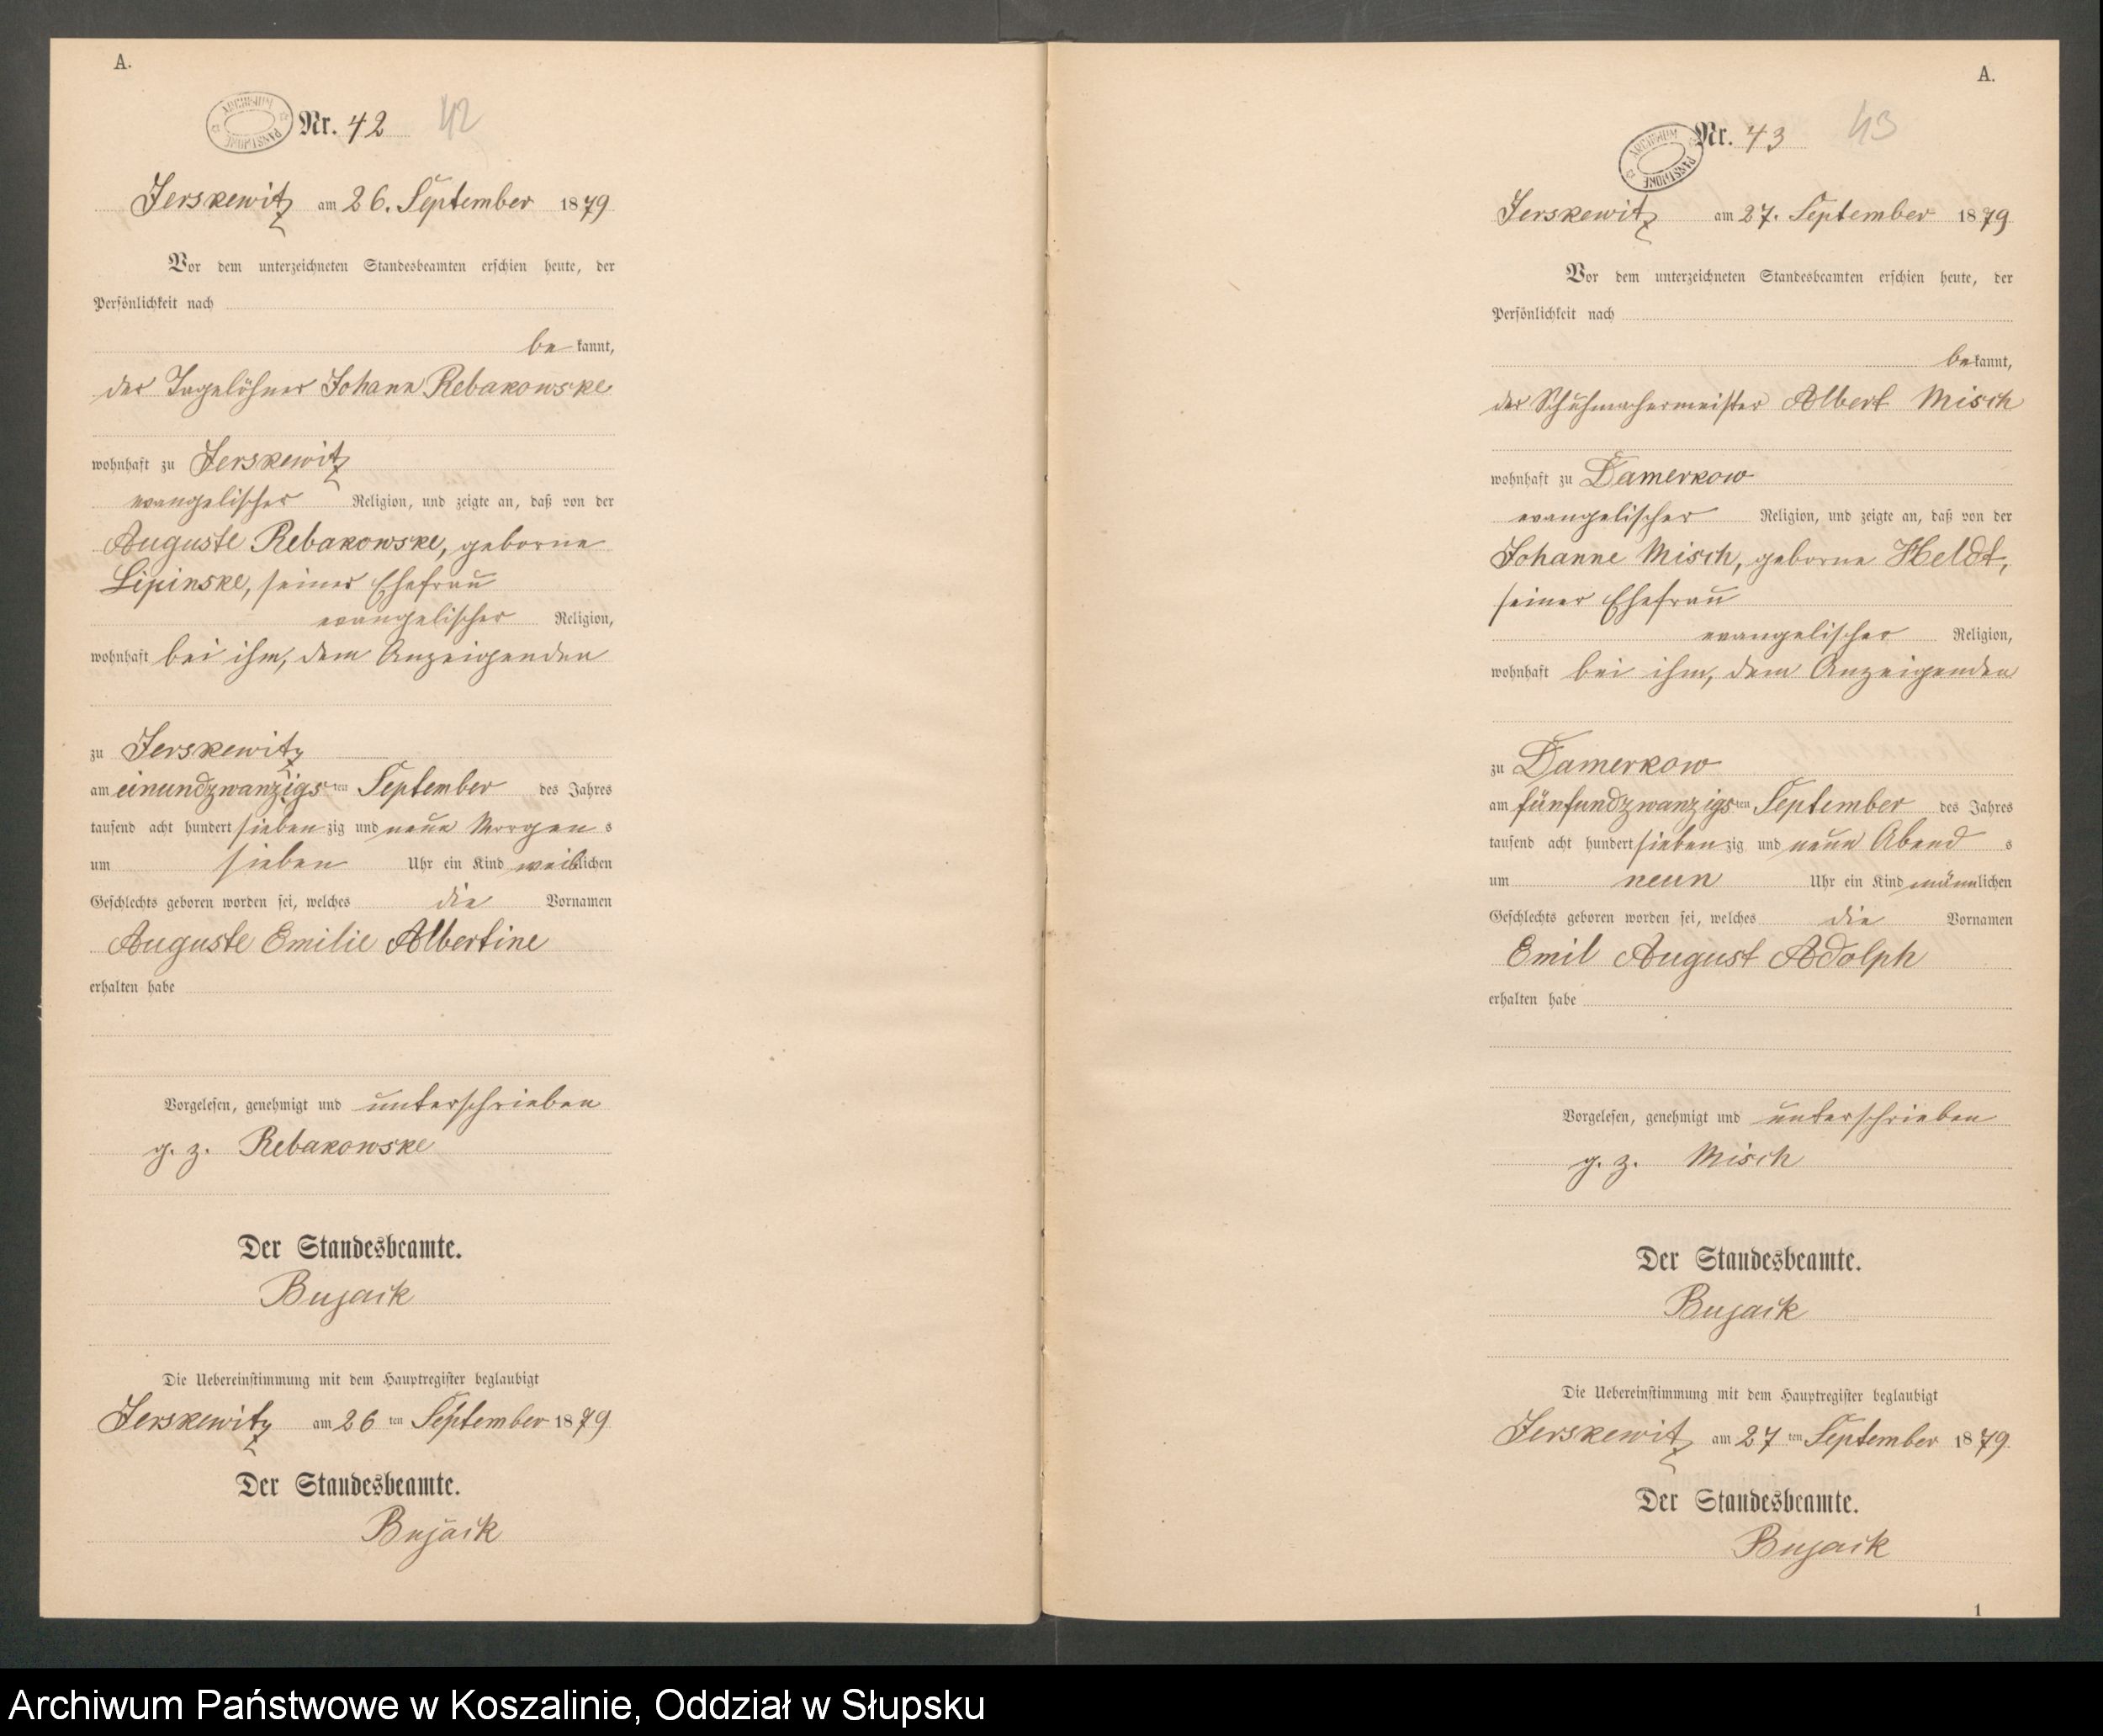 A.
ARCHIWUM PAŃSTWOWE
Nr. 42 42
Jerskewitz am 26. September 1879
Vor dem unterzeichneten Standesbeamten erschien heute, der
Persönlichkeit nach
be kannt,
der Tagelöhner Johann Rebakowske
wohnhaft zu Jerskewitz
evangelischer Religion, und zeigte an, daß von der
Auguste Rebakowske, geborne
Lipinske, seiner Ehefrau
evangelischer Religion,
wohnhaft bei ihm, dem Anzeigenden
zu Jerskewitz
am einundzwanzigsten September des Jahres
tausend acht hundert siebenzig und neun Morgens
um sieben Uhr ein Kind weiblichen
Geschlechts geboren worden sei, welches die Vornamen
Auguste Emilie Albertine
erhalten habe
Vorgelesen, genehmigt und unterschrieben
g. z. Rebakowske
Der Standesbeamte.
Bujack
Die Uebereinstimmung mit dem Hauptregister beglaubigt
Jerskewitz am 26 ten September 1879
Der Standesbeamte.
Bujack
A.
ARCHIWUM PAŃSTWOWE
Nr. 43 43
Jerskewitz am 27. September 1879
Vor dem unterzeichneten Standesbeamten erschien heute, der
Persönlichkeit nach
bekannt,
der Schuhmachermeister Albert Misch
wohnhaft zu Damerkow
evangelischer Religion, und zeigte an, daß von der
Johanne Misch, geborne Heldt,
seiner Ehefrau
evangelischer Religion,
wohnhaft bei ihm, dem Anzeigenden
zu Damerkow
am fünfundzwanzigsten September des Jahres
tausend acht hundert siebenzig und neun Abends
um neun Uhr ein Kind männlichen
Geschlechts geboren worden sei, welches die Vornamen
Emil August Adolph
erhalten habe
Vorgelesen, genehmigt und unterschrieben
g. z. Misch
Der Standesbeamte.
Bujack
Die Uebereinstimmung mit dem Hauptregister beglaubigt
Jerskewitz am 27 ten September 1879
Der Standesbeamte.
Bujack
1
Archiwum Państwowe w Koszalinie, Oddział w Słupsku